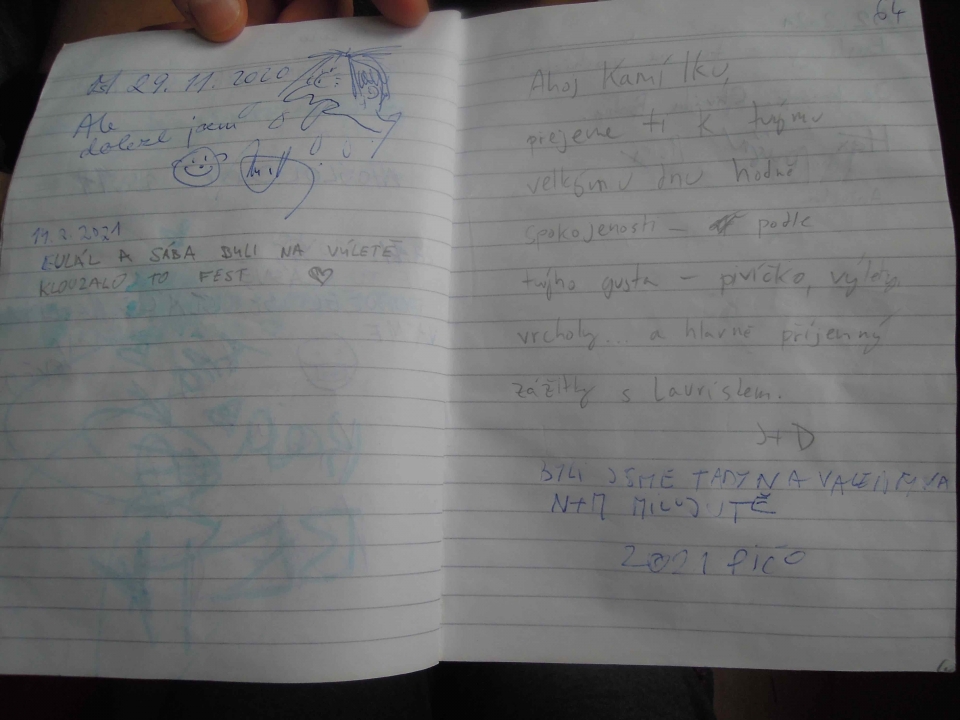 29. 11. 2020
Ale
dolezl jsem
11.2.2021
EULÁL A SÁBA BYLI NA VÝLETĚ
KLOUZALO TO FEST
64
Ahoj Kamilku,
přejeme ti k tvýmu
velkýmu dnu hodně
spokojenosti – podle
tvýho gusta – pivíčko, výlety,
vrcholy... a hlavně příjemný
zážitky s Lavrišlem.
J+D
BYLI JSME TADY NA VALENTÝNA
N+M MILUJU TĚ
2021 PIČO